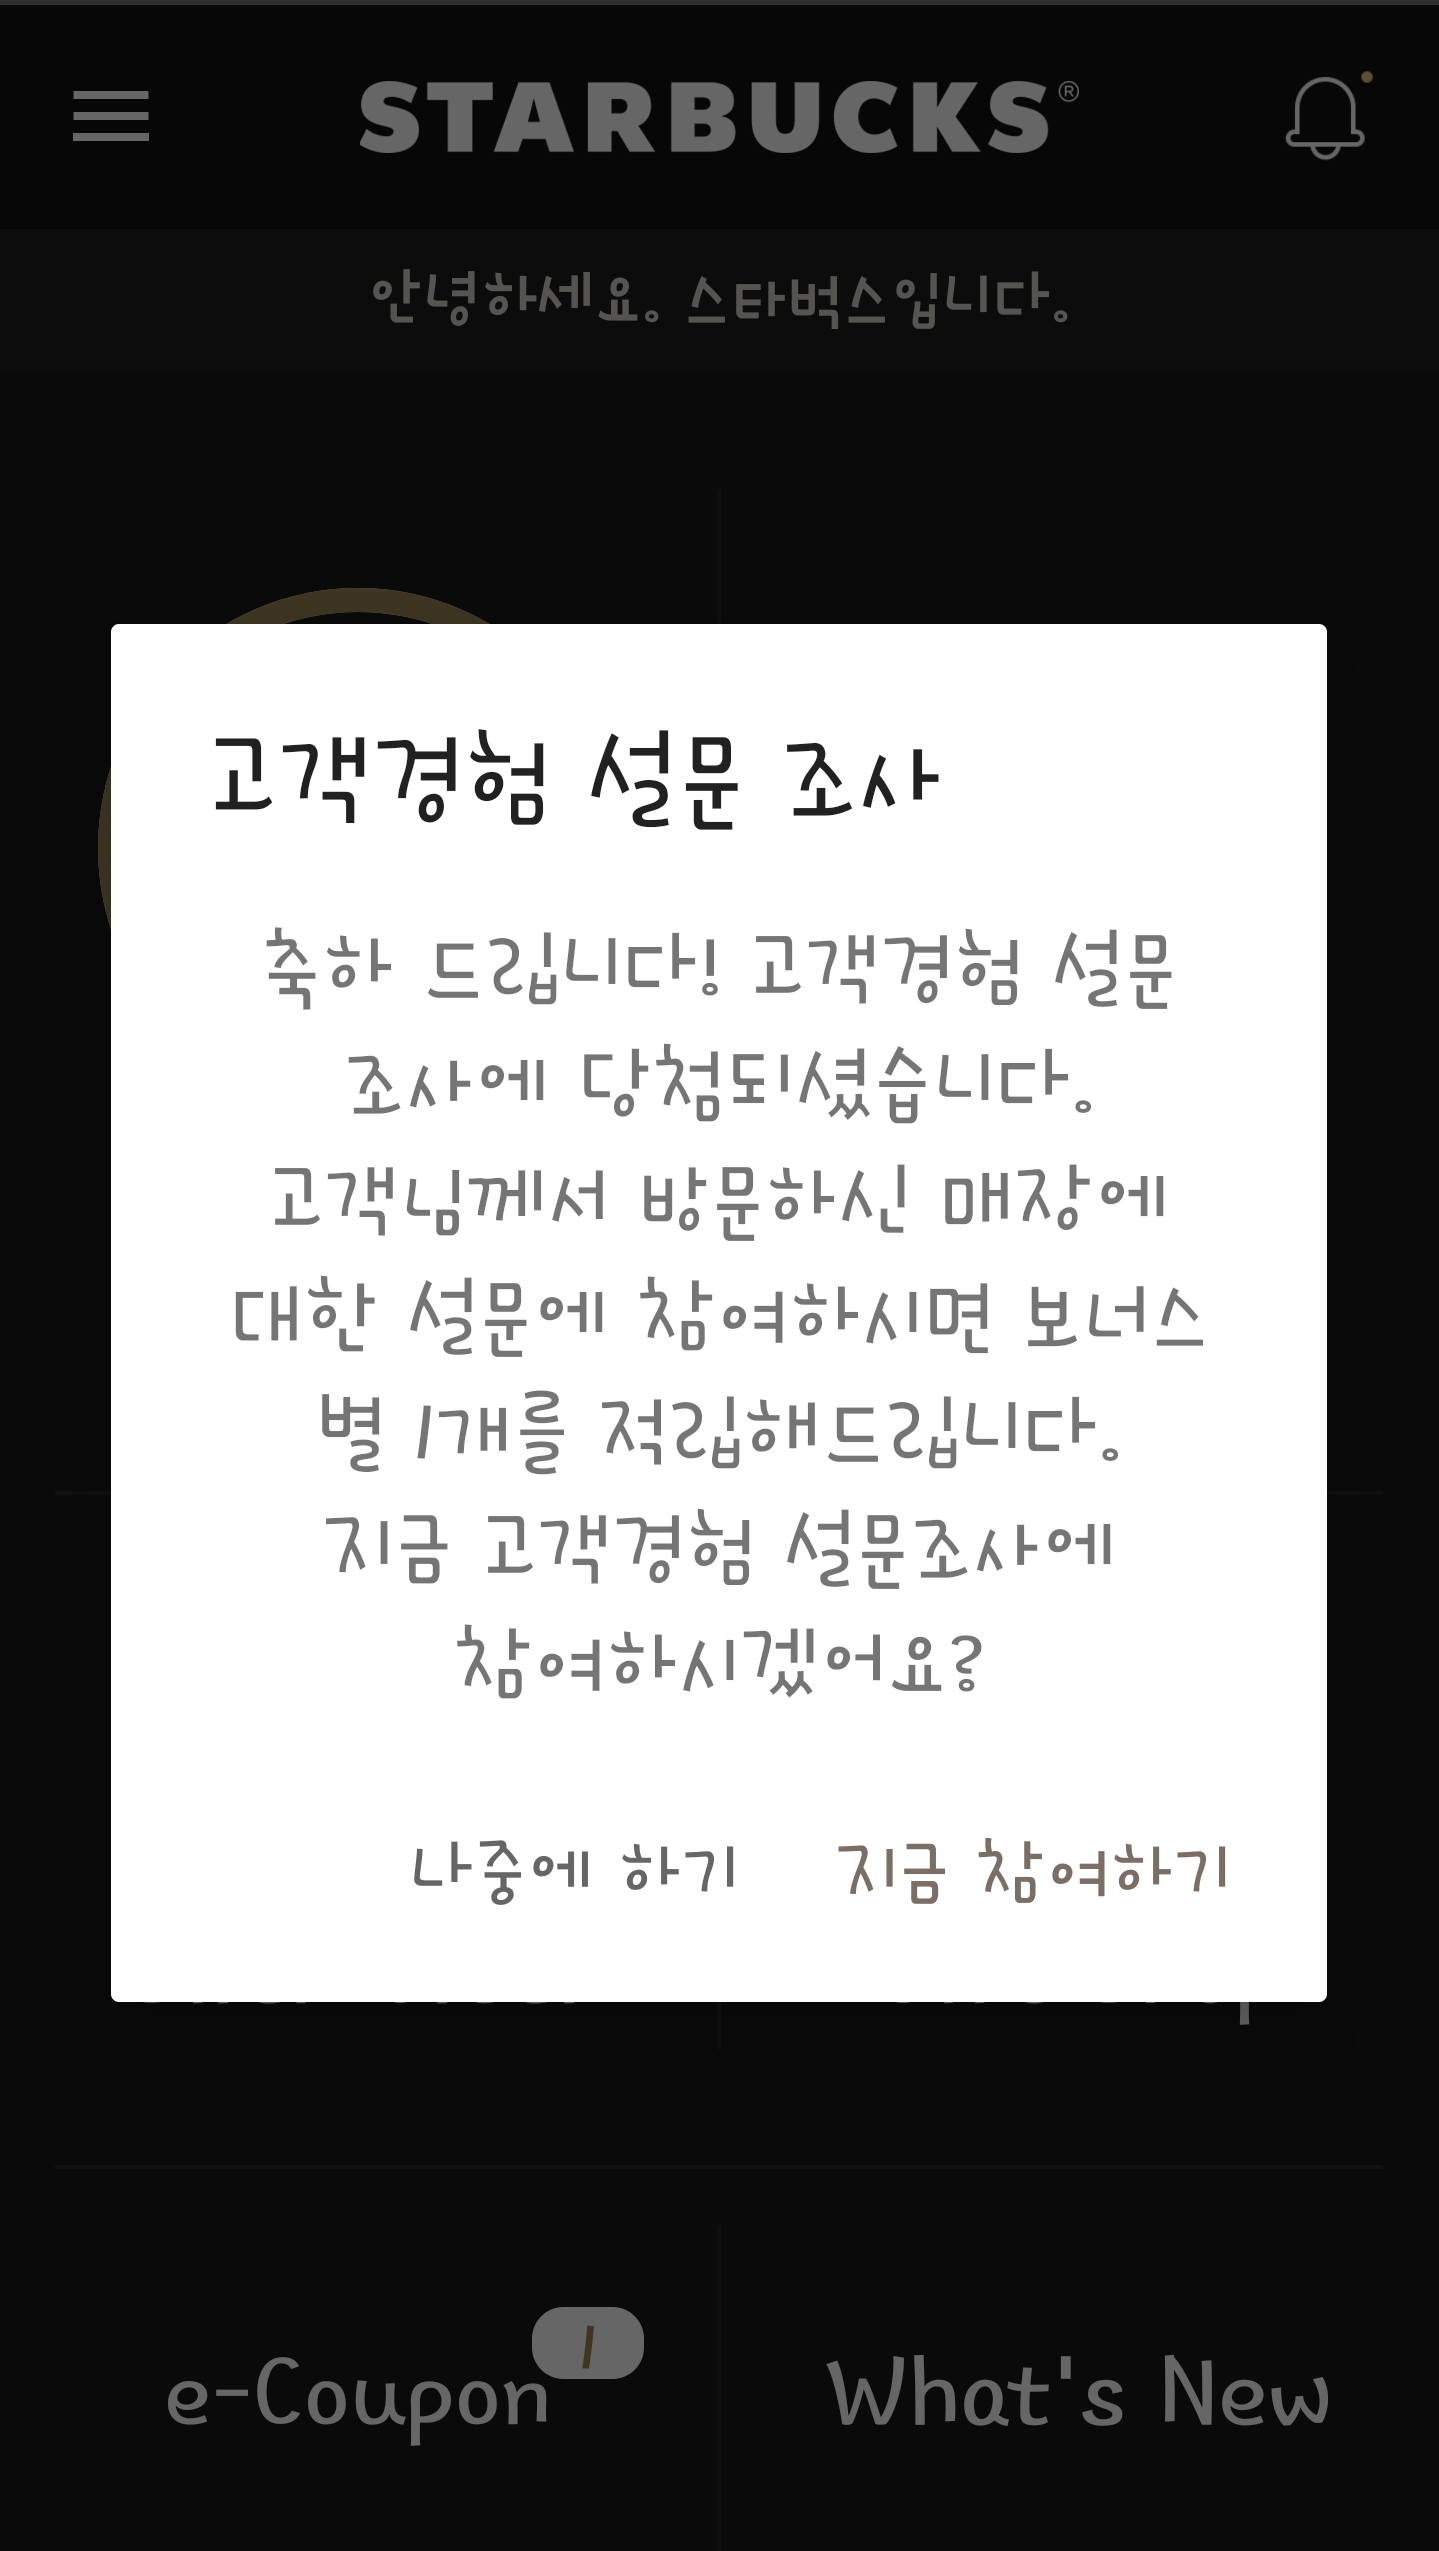 STARBUCKS®
안녕하세요. 스타벅스입니다.
고객경험 설문 조사
축하 드립니다! 고객경험 설문
조사에 당첨되셨습니다.
고객님께서 방문하신 매장에
대한 설문에 참여하시면 보너스
별 1개를 적립해드립니다.
지금 고객경험 설문조사에
참여하시겠어요?
나중에 하기 지금 참여하기
1
e-Coupon What's New